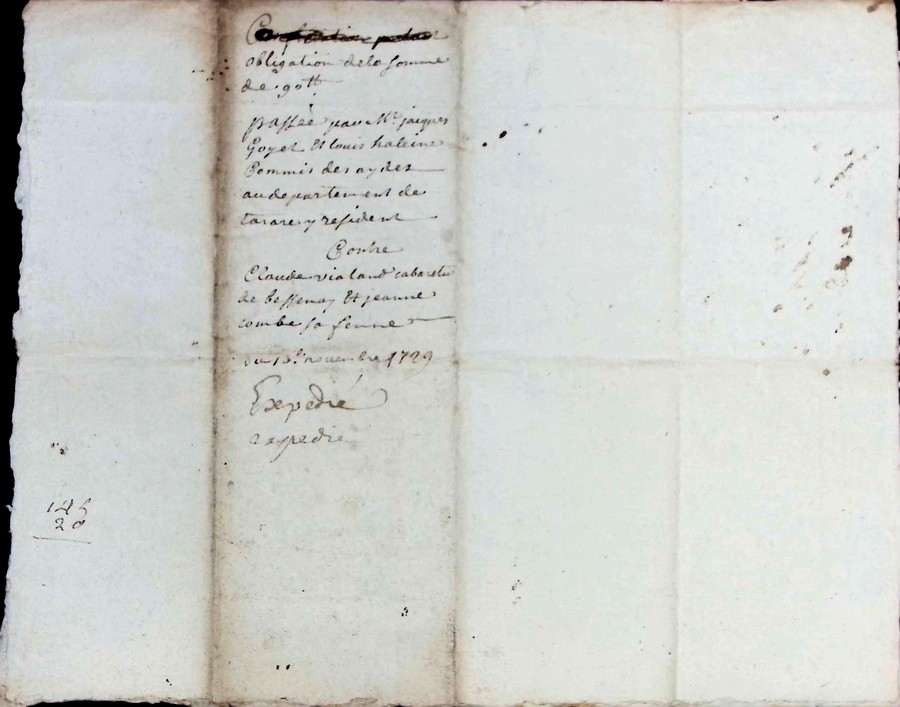 obligation de la somme
de 90tt
passée par Mr. jacques
Goyet Et louis haleine
Commis des aydes
au departement de
tarare y resident
Contre
Claude vialand cabaretier
de bessenay Et jeanne
combe sa femme
du novembre 1729
Expedié
expedié
145
20